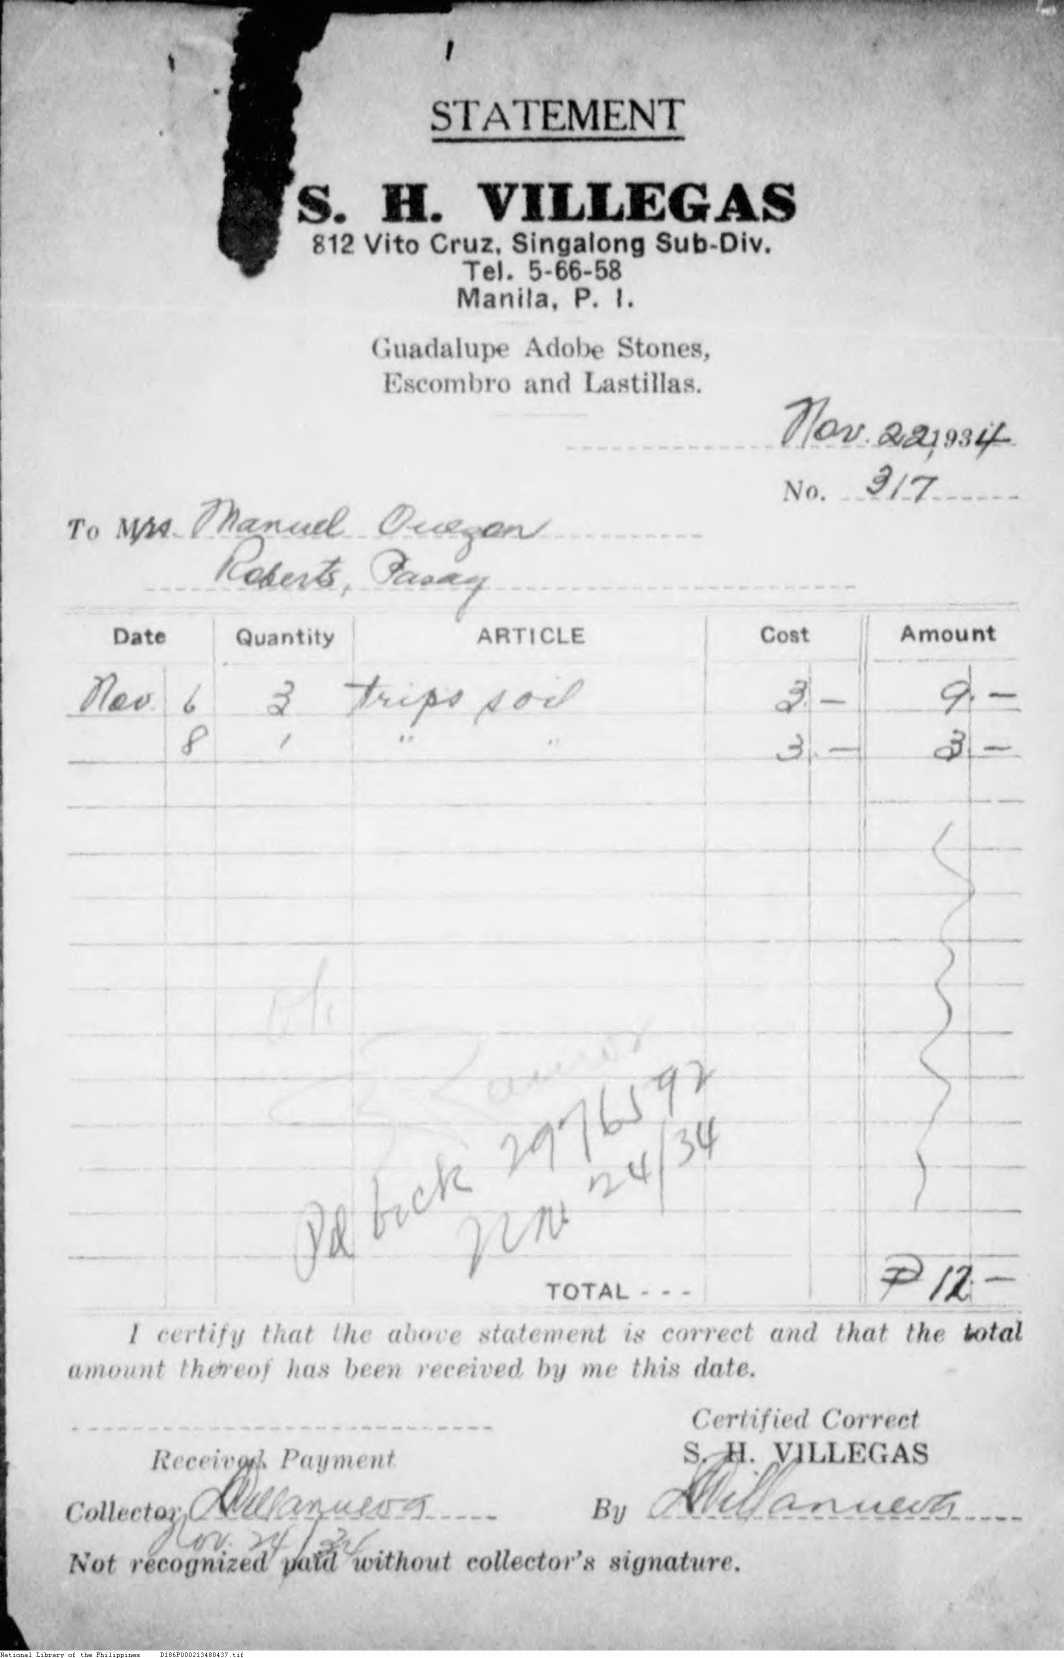 STATEMENT
S. H. VILLEGAS
812 Vito Cruz, Singalong Sub-Div.
Tel. 5-66-58
Manila, P. I.
Guadalupe Adobe Stones,
Escombro and Lastillas.
Nov. 22, 1934
No. 317
To Mrs. Manuel Quezon
Roberts, Pasay
Date Quantity ARTICLE Cost Amount
Nov. 6 3 trips soil 3 - 9 -
8 1 " " 3 - 3 -
ok
Ramos
Pd by ck 2976592
Nov 24/34
TOTAL - - - ₱ 12 -
I certify that the above statement is correct and that the total
amount thereof has been received by me this date.
Certified Correct
Received Payment S. H. VILLEGAS
Collector Villanueva By Villanueva
Nov. 24/34
Not recognized paid without collector's signature.
National Library of the Philippines D186P000213480437.tif